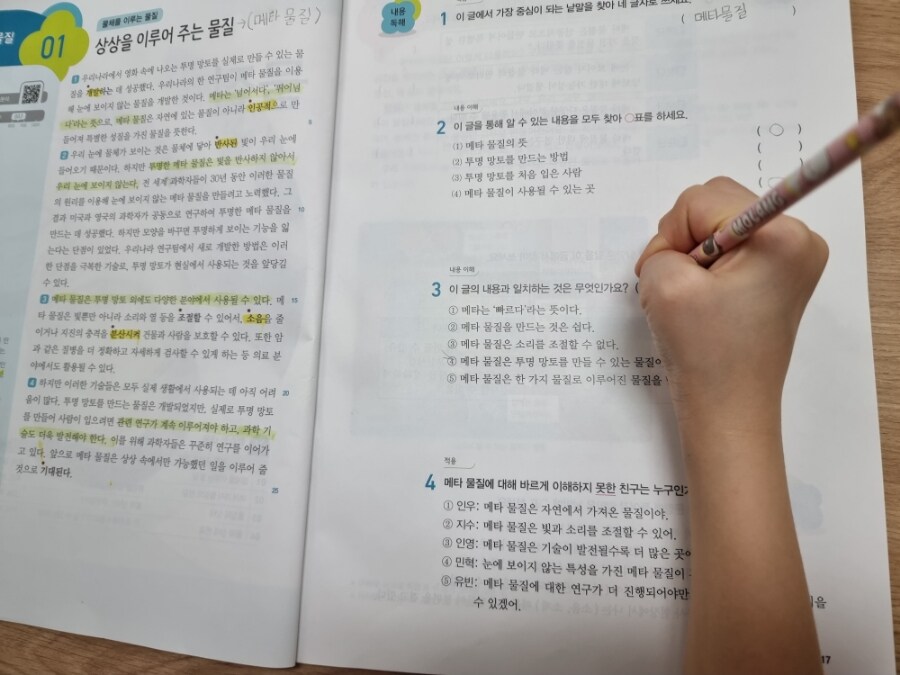 물체를 이루는 물질
01
상상을 이루어 주는 물질 →(메타 물질)
1 우리나라에서 영화 속에 나오는 투명 망토를 실제로 만들 수 있는 물
질을 개발하는 데 성공했다. 우리나라의 한 연구팀이 메타 물질을 이용
해 눈에 보이지 않는 물질을 개발한 것이다. 메타는 '넘어서다', '뛰어넘
다'라는 뜻으로, 메타 물질은 자연에 있는 물질이 아니라 인공적으로 만
들어져 특별한 성질을 가진 물질을 뜻한다.
5
2 우리 눈에 물체가 보이는 것은 물체에 닿아 반사된 빛이 우리 눈에
들어오기 때문이다. 하지만 투명한 메타 물질은 빛을 반사하지 않아서
우리 눈에 보이지 않는다. 전 세계 과학자들이 30년 동안 이러한 물질
의 원리를 이용해 눈에 보이지 않는 메타 물질을 만들려고 노력했다. 그
결과 미국과 영국의 과학자가 공동으로 연구하여 투명한 메타 물질을
10
만드는 데 성공했다. 하지만 모양을 바꾸면 투명하게 보이는 기능을 잃
는다는 단점이 있었다. 우리나라 연구팀에서 새로 개발한 방법은 이러
한 단점을 극복한 기술로, 투명 망토가 현실에서 사용되는 것을 앞당길
수 있다.
3 메타 물질은 투명 망토 외에도 다양한 분야에서 사용될 수 있다. 메
15
타 물질은 빛뿐만 아니라 소리와 열 등을 조절할 수 있어서, 소음을 줄
이거나 지진의 충격을 분산시켜 건물과 사람을 보호할 수 있다. 또한 암
과 같은 질병을 더 정확하고 자세하게 검사할 수 있게 하는 등 의료 분
야에서도 활용될 수 있다.
4 하지만 이러한 기술들은 모두 실제 생활에서 사용되는 데 아직 어려
20
움이 많다. 투명 망토를 만드는 물질은 개발되었지만, 실제로 투명 망토
를 만들어 사람이 입으려면 관련 연구가 계속 이루어져야 하고, 과학 기
술도 더욱 발전해야 한다. 이를 위해 과학자들은 꾸준히 연구를 이어가
고 있다. 앞으로 메타 물질은 상상 속에서만 가능했던 일을 이루어 줄
것으로 기대된다.
25
내용
독해
1 이 글에서 가장 중심이 되는 낱말을 찾아 네 글자로 쓰세요.
( 메타물질 )
내용 이해
2 이 글을 통해 알 수 있는 내용을 모두 찾아 ○표를 하세요.
(1) 메타 물질의 뜻 ( ○ )
(2) 투명 망토를 만드는 방법 ( )
(3) 투명 망토를 처음 입은 사람 (
(4) 메타 물질이 사용될 수 있는 곳 (
내용 이해
3 이 글의 내용과 일치하는 것은 무엇인가요? (
① 메타는 '빠르다'라는 뜻이다.
② 메타 물질을 만드는 것은 쉽다.
③ 메타 물질은 소리를 조절할 수 없다.
④ 메타 물질은 투명 망토를 만들 수 있는 물질이
⑤ 메타 물질은 한 가지 물질로 이루어진 물질을
적용
4 메타 물질에 대해 바르게 이해하지 못한 친구는 누구인가
① 인우: 메타 물질은 자연에서 가져온 물질이야.
② 지수: 메타 물질은 빛과 소리를 조절할 수 있어.
③ 인영: 메타 물질은 기술이 발전될수록 더 많은 곳에
④ 민혁: 눈에 보이지 않는 특성을 가진 메타 물질이
⑤ 유빈: 메타 물질에 대한 연구가 더 진행되어야만
수 있겠어.
17